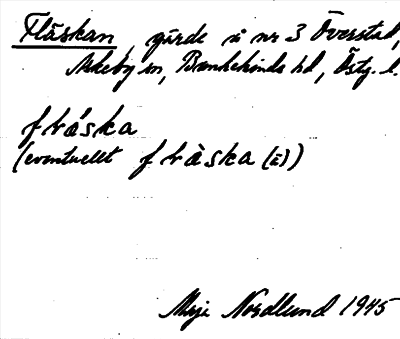 Fläskan, gärde i nr 3 Överstad,
Askeby sn, Bankekinds hd, Östg. l.
flàska
(eventuellt flàska (ä))
Maja Nordlund 1945